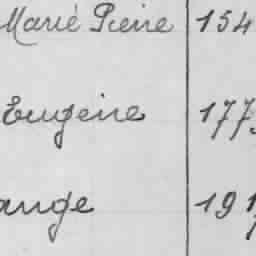 Marie Pierre 154
Eugène 177
ange 191